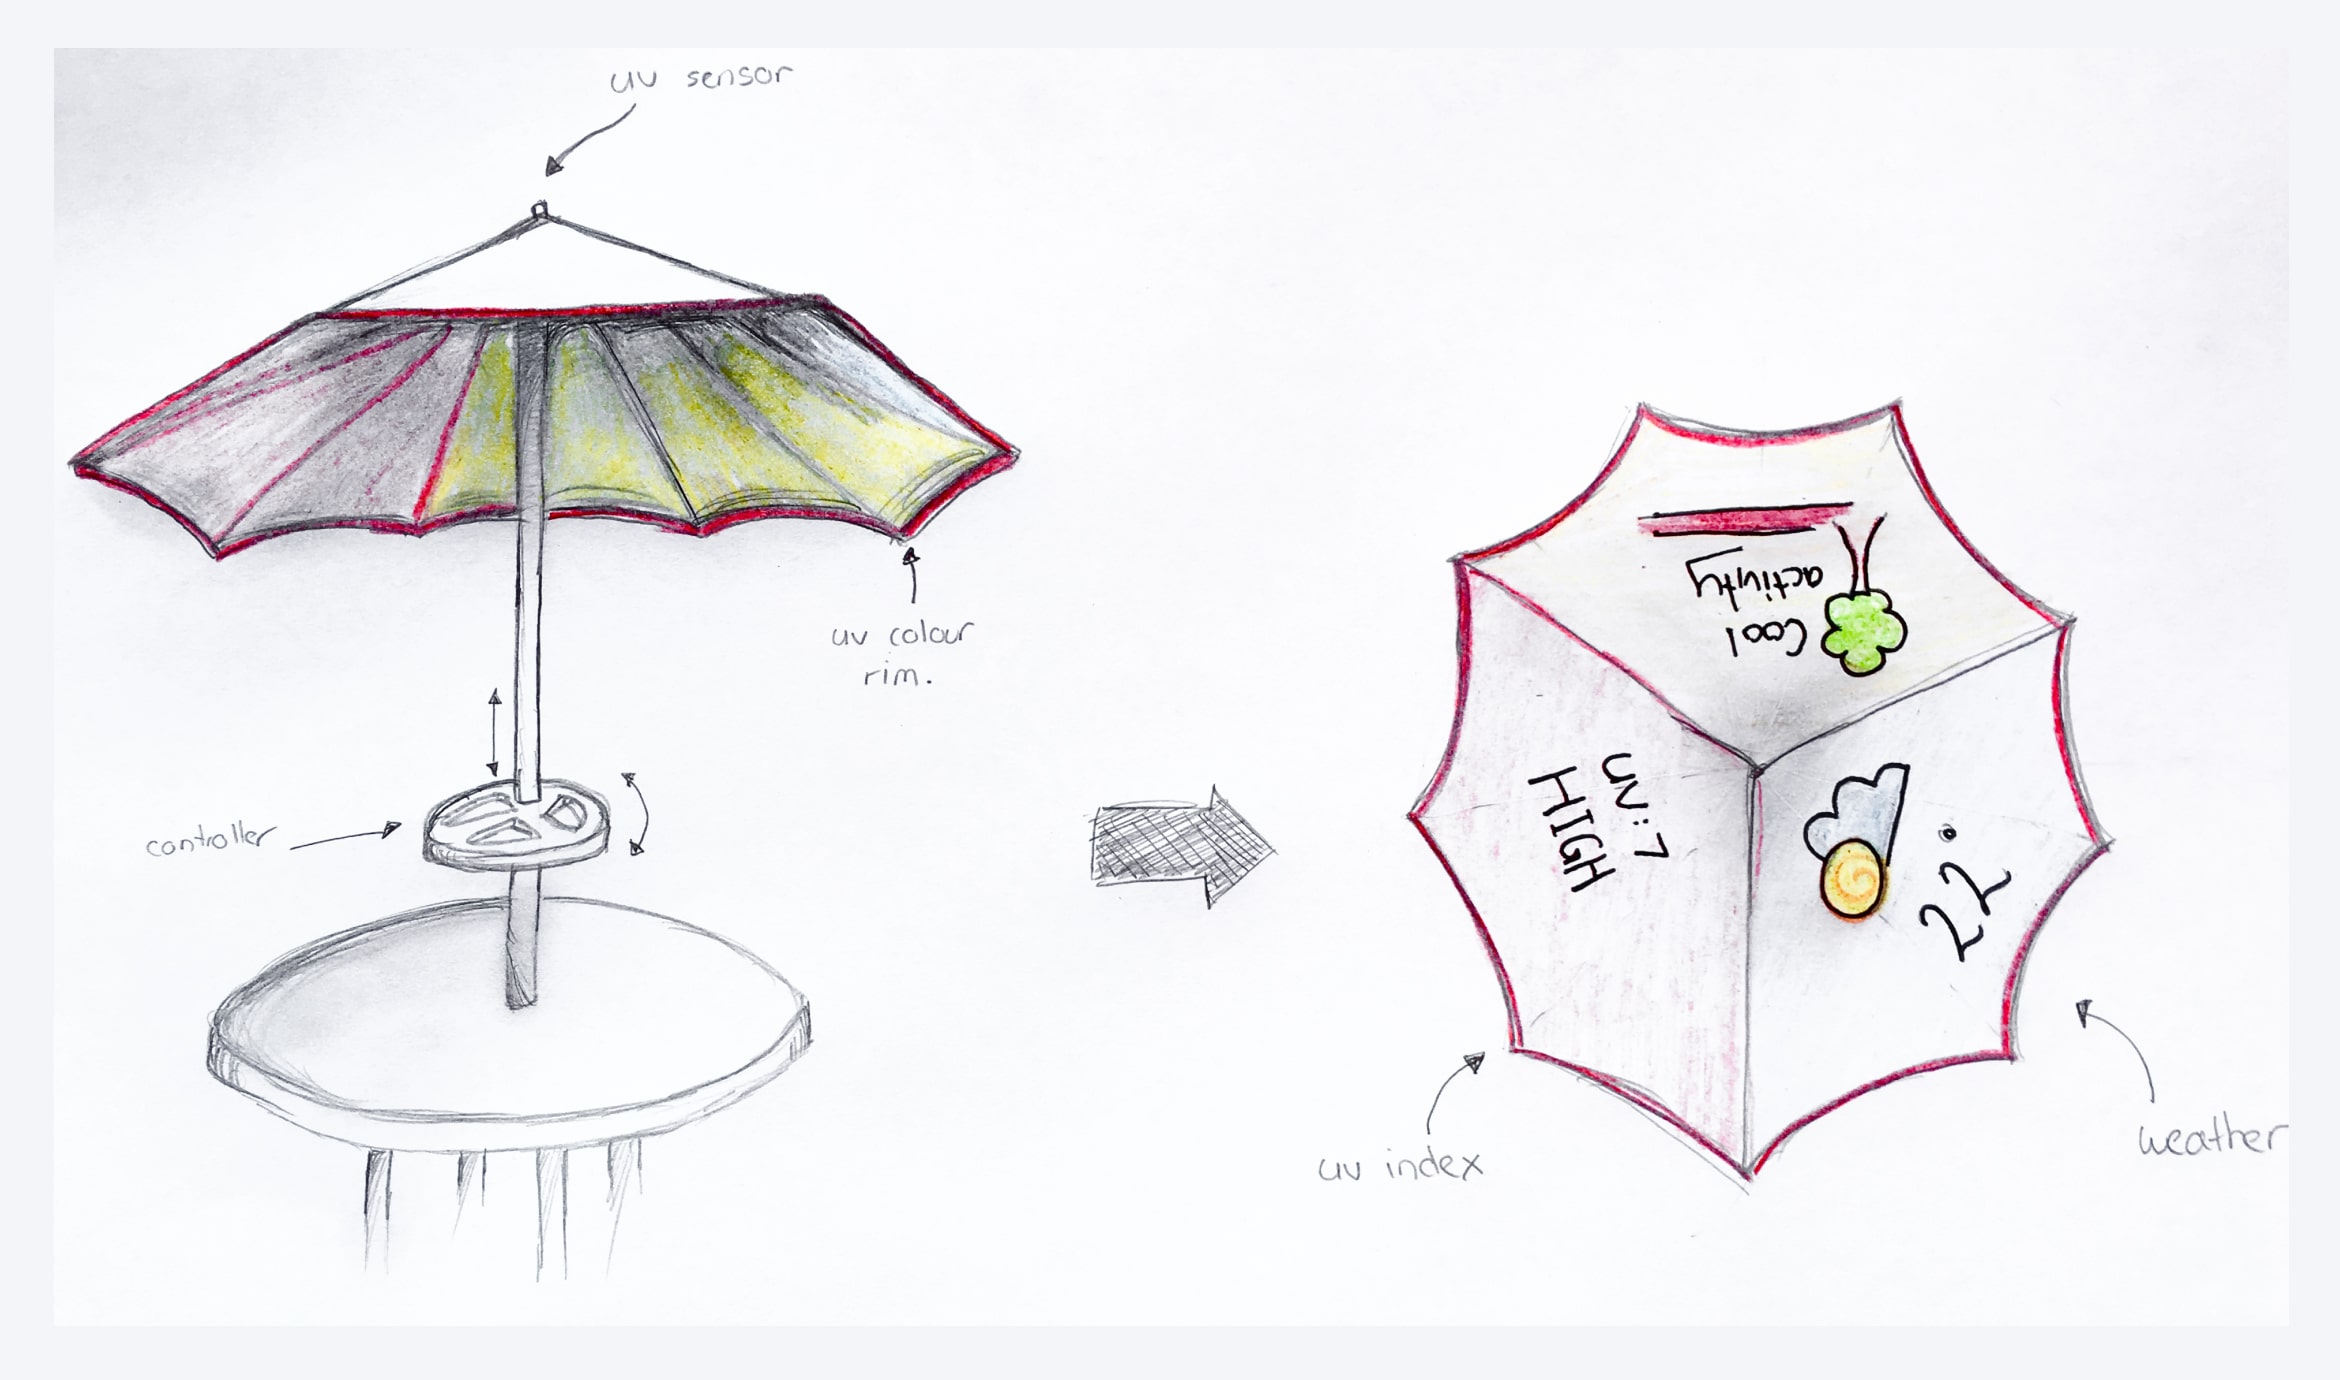 uv sensor
uv colour
rim.
controller
Cool
activity
uv:7
HIGH
22°
uv index
weather